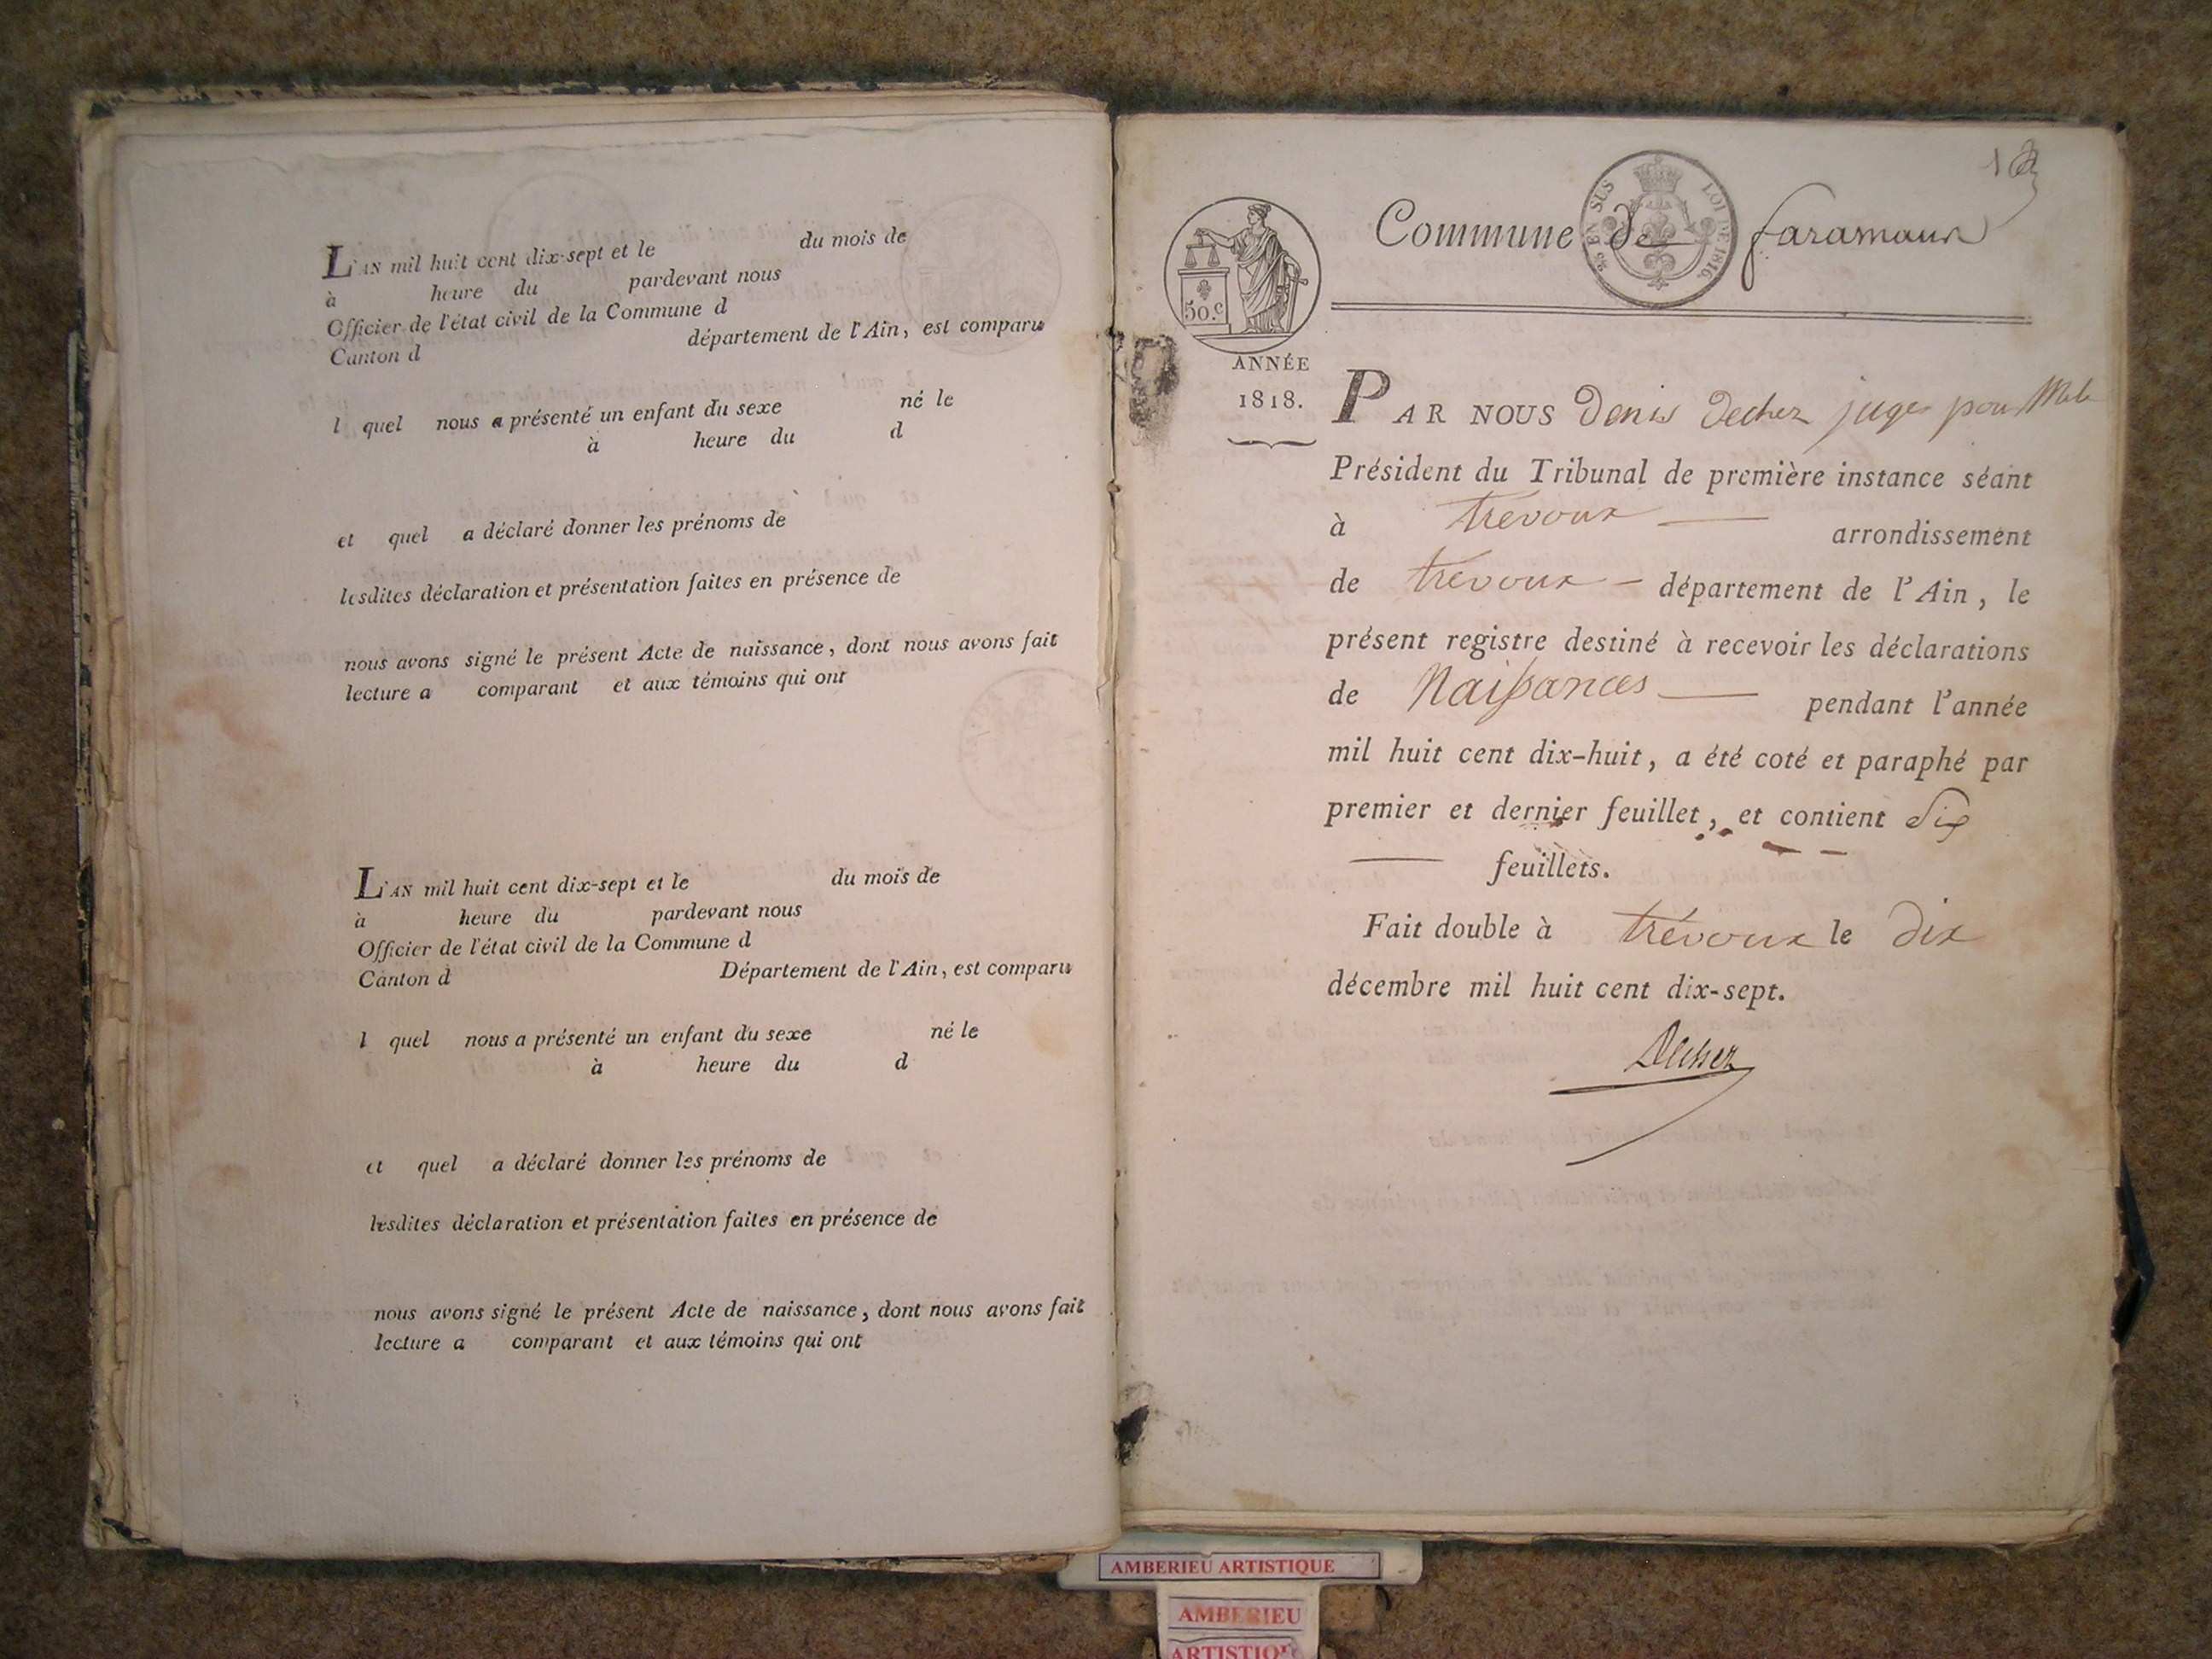 L'AN mil huit cent dix-sept et le du mois de
à heure du pardevant nous
Officier de l'état civil de la Commune d
Canton d département de l'Ain, est comparu
l quel nous a présenté un enfant du sexe né le
à heure du d
et quel a déclaré donner les prénoms de
lesdites déclaration et présentation faites en présence de
nous avons signé le présent Acte de naissance, dont nous avons fait
lecture a comparant et aux témoins qui ont
L'AN mil huit cent dix-sept et le du mois de
à heure du pardevant nous
Officier de l'état civil de la Commune d
Canton d Département de l'Ain, est comparu
l quel nous a présenté un enfant du sexe né le
à heure du d
et quel a déclaré donner les prénoms de
lesdites déclaration et présentation faites en présence de
nous avons signé le présent Acte de naissance, dont nous avons fait
lecture a comparant et aux témoins qui ont
1
Commune de faramans
EN SUS LOI DE 1816.
50.c
ANNÉE
1818.
PAR NOUS Denis Dechez juge pour Mr le
Président du Tribunal de première instance séant
à trevoux arrondissement
de trevoux département de l'Ain, le
présent registre destiné à recevoir les déclarations
de Naissances pendant l'année
mil huit cent dix-huit, a été coté et paraphé par
premier et dernier feuillet, et contient Six
feuillets.
Fait double à trévoux le dix
décembre mil huit cent dix-sept.
Dechez
AMBERIEU ARTISTIQUE
AMBERIEU
ARTISTIQUE